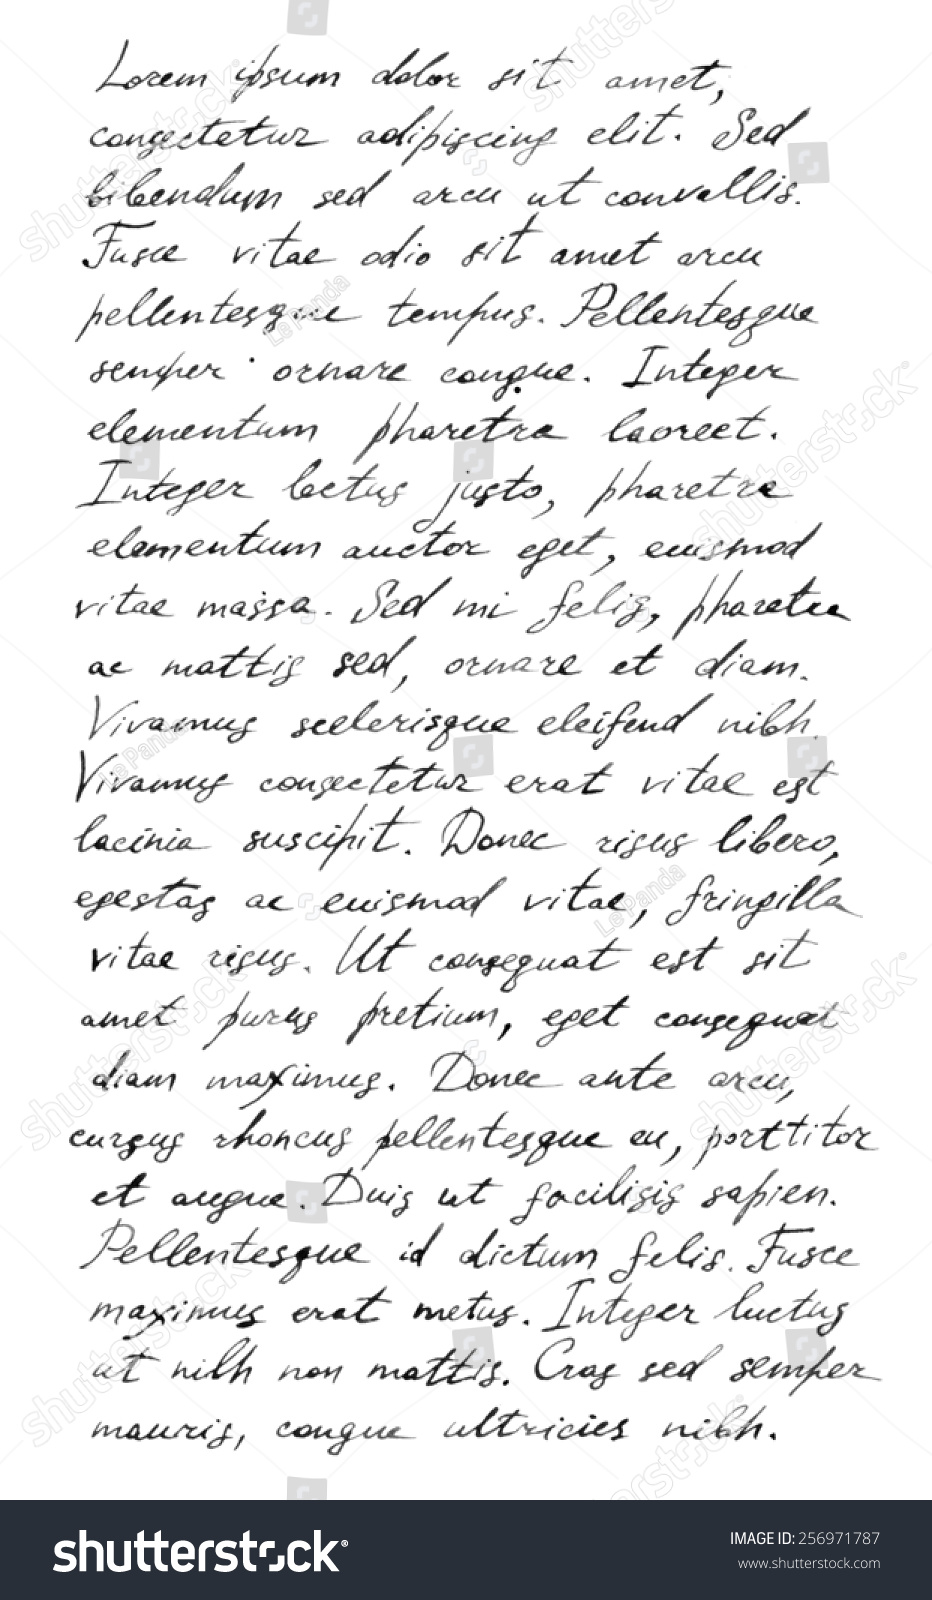 Lorem ipsum dolor sit amet,
consectetur adipiscing elit. Sed
bibendum sed arcu ut convallis.
Fusce vitae odio sit amet arcu
pellentesque tempus. Pellentesque
semper ornare congue. Integer
elementum pharetra laoreet.
Integer lectus justo, pharetra
elementum auctor eget, euismod
vitae massa. Sed mi felis, pharetra
ac mattis sed, ornare et diam.
Vivamus scelerisque eleifend nibh.
Vivamus consectetur erat vitae est
lacinia suscipit. Donec risus libero,
egestas ac euismod vitae, fringilla
vitae risus. Ut consequat est sit
amet purus pretium, eget consequat
diam maximus. Donec ante arcu,
cursus rhoncus pellentesque eu, porttitor
et augue. Duis ut facilisis sapien.
Pellentesque id dictum felis. Fusce
maximus erat metus. Integer luctus
ut nibh non mattis. Cras sed semper
mauris, congue ultricies nibh.
shutterstock
IMAGE ID: 256971787
www.shutterstock.com